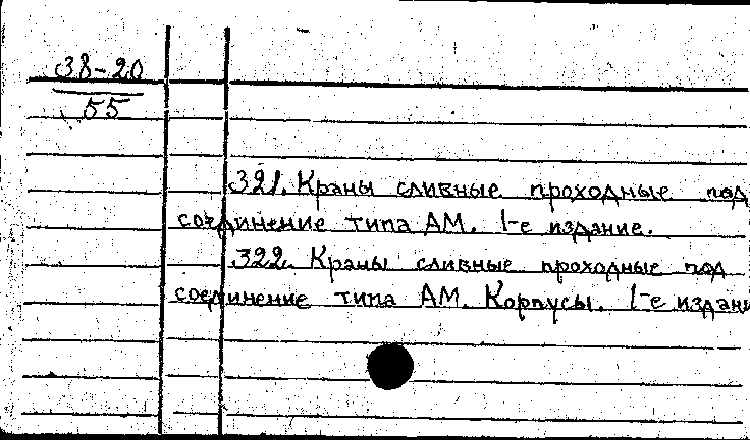 38-20
55
321. Краны сливные проходные под
соединение типа АМ. 1-е издание.
322. Краны сливные проходные под
соединение типа АМ. Корпусы. 1-е издани